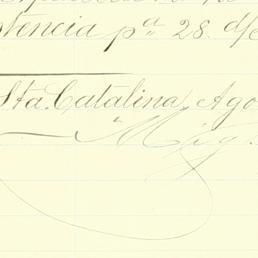 stencia pª 28. d/c
Sta. Catalina, Ago
Mig